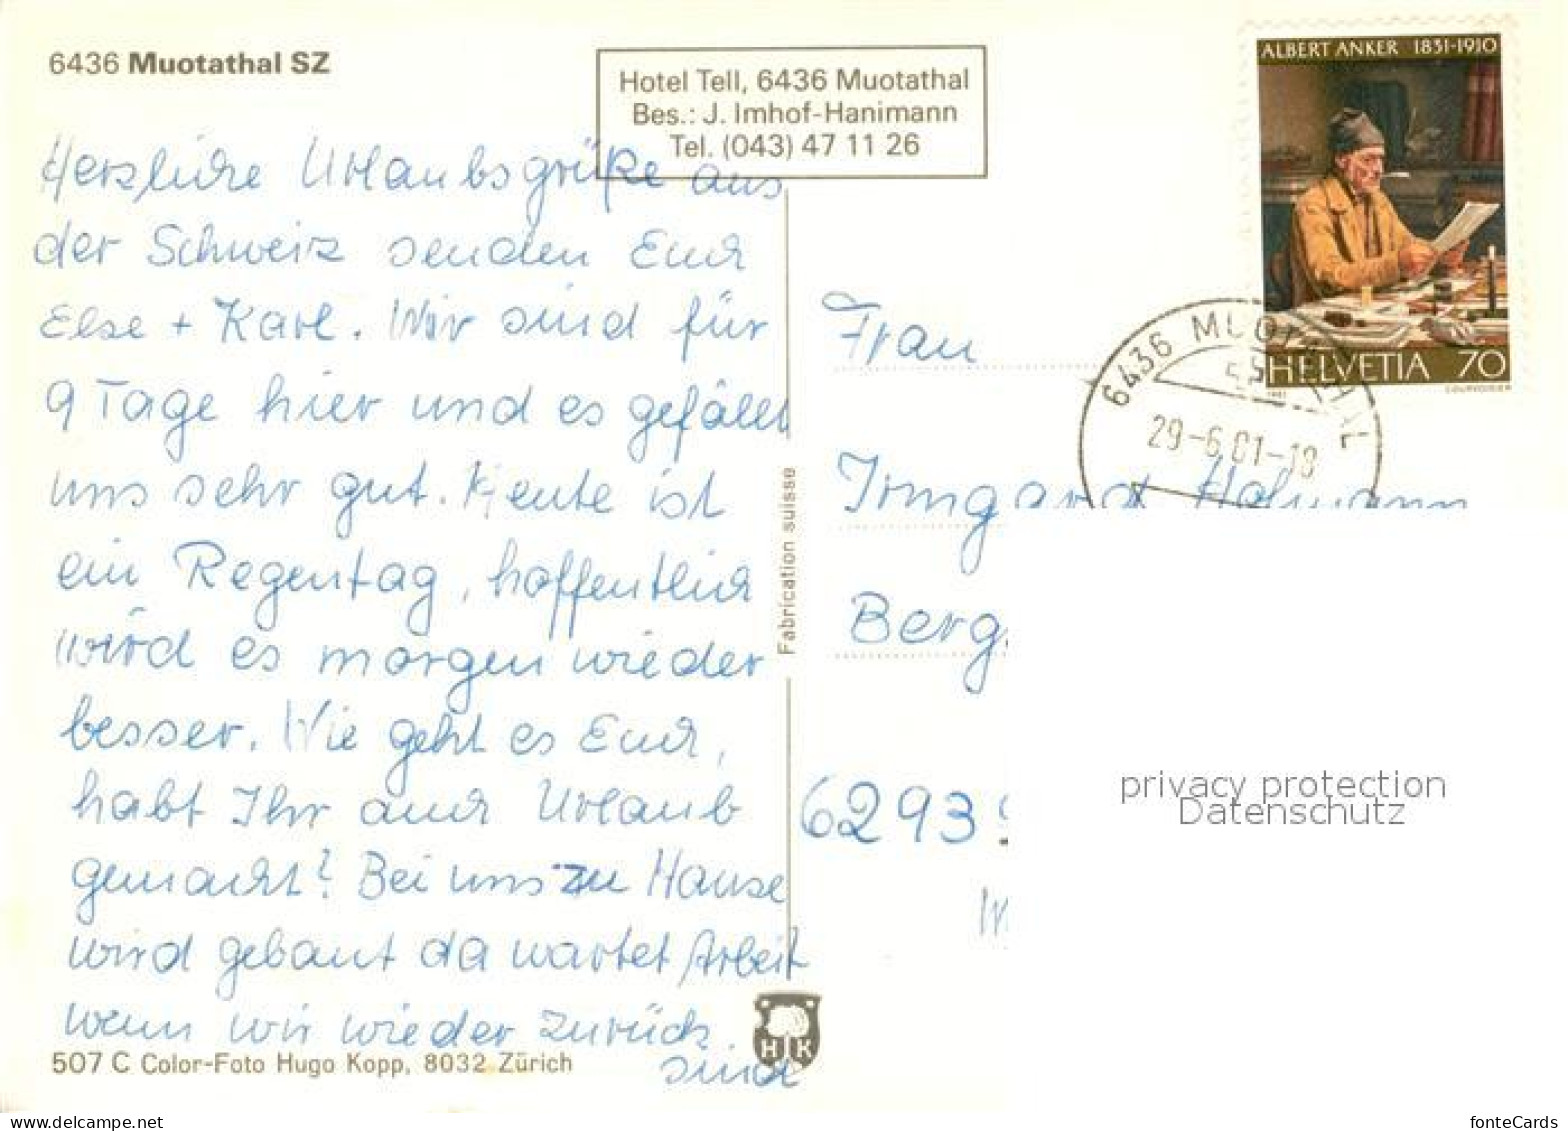 6436 Muotathal SZ
Hotel Tell, 6436 Muotathal
Bes.: J. Imhof-Hanimann
Tel. (043) 47 11 26
ALBERT ANKER 1831-1910
HELVETIA 70
COURVOISIER
6436 MUOTATHAL
29-6.81-18
Herzliche Urlaubsgrüße aus
der Schweiz senden Euch
Else + Karl. Wir sind für
9 Tage hier und es gefällt
uns sehr gut. Heute ist
ein Regentag, hoffentlich
wird es morgen wieder
besser. Wie geht es Euch,
habt Ihr auch Urlaub
gemacht? Bei uns zu Hause
wird gebaut da wartet Arbeit
wenn wir wieder zurück
sind
Frau
Irmgard Hofmann
Berg
6293
W
Fabrication suisse
H K
507 C Color-Foto Hugo Kopp, 8032 Zürich
privacy protection
Datenschutz
www.delcampe.net
fonteCards